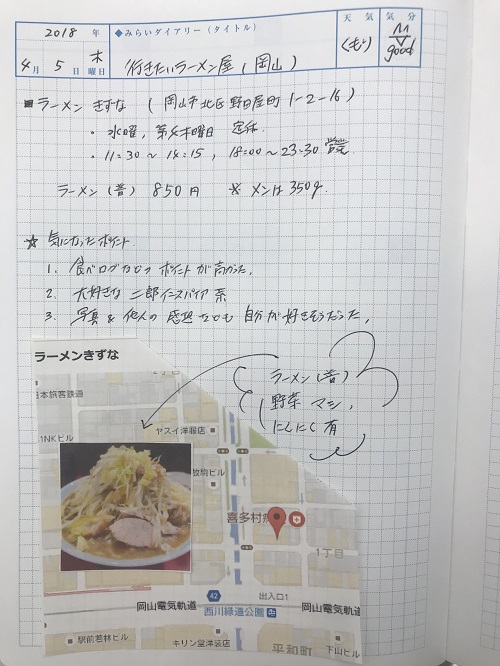 2018 年
◆みらいダイアリー(タイトル)
天気
気分
4月 5日 木曜日
行きたいラーメン屋(岡山)
くもり
good
■ラーメン きずな (岡山市北区野田屋町1-2-16)
・水曜, 第4木曜日 定休
・11:30~14:15, 18:00~23:30 営業
ラーメン(普) 850円 ※メンは350g.
☆ 気になったポイント
1. 食べログなどのポイントが高かった.
2. 大好きな二郎インスパイア系
3. 写真&他人の感想なども自分が好きそうだった.
ラーメンきずな
ラーメン(普)
野菜 マシ,
にんにく 有
日本旅客鉄道
2丁目
1NKビル
ヤスイ洋服店
喜多村
1丁目
42
出入口1
岡山電気軌道
西川緑道公園
岡山電気軌道
駅前若林ビル
キリン堂洋装店
平和町
下山ビル